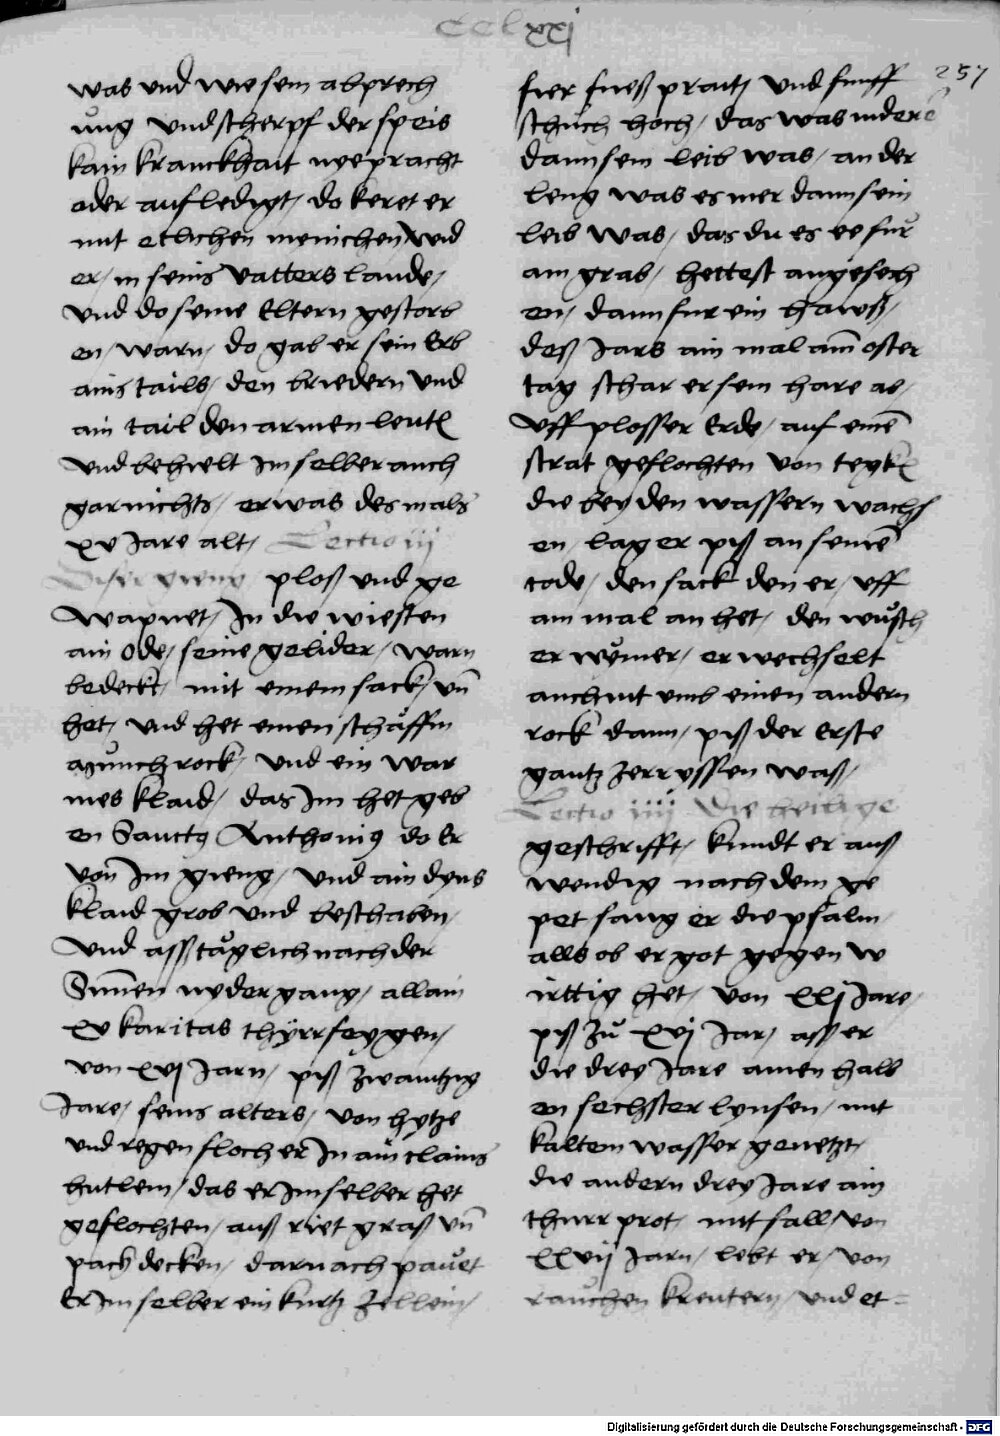 CCLxxj
257
was und wie sein abprech
ung und scherpf der speis
kain kranckhait nye pracht
oder aufledigt / do keret er
mit etlichen menichen wid
er / in seins vatters lande /
und do seine Eltern gestorb
en / warn / do gab er sein Erb
ains tails / den briedern und
ain tail den armen leuten
und behielt im selber auch
gar nichts / er was des mals
xv Jare alt / Lectio iij
Diser gieng / ploß und ge
wapnet / In die wiesten
ain öde / seine gelider / warn
bedeckt / mit einem sack / un̄
het / und het einen schäffin
rock / und ein war
mes klaid / das Im het geb
en Sanctus Anthonius do Er
von Im gieng / und ain dyns
klaid grob und beschaben /
und ass täglich nach der
Sūnen nydergang / allain
xv karitas thÿrr feygen /
von xvj Jarn / piß zwaintzig
Jare / seins alters / von hytze
und regen floch er In ain clains
hütlein / das er Im selber het
geflochten / auß riet graß un̄
pach decken / darnach pauet
Er Im selber ein kurtz Zellein /
fier fueß prait / und funff
schuch hoch / das was nidere
dann sein leib was / an der
leng was es mer dann sein
leib was / das du es ee für
ain grab / hettest angesech
en / dann fur ein hawß /
deß Jars ain mal am̄ oster
tag schar er sein hare ab /
uff plosser Erde / auf einē
strat geflochten von
die bey den wassern wachs
en / lag er piß an seinē
tode / den sack den er / uff
ain mal an het / den wusch
er nÿmer / er wechselt
auch nit umb einen andern
rock dann / piß der Erste
gantz zerryssen waß /
Lectio iiij Die heilige
geschrifft / kundt er auß
wendig nach dem ge
pet sang er die psalm
alls ob er got gegen w
irttig het / von xxj Jare /
piß zu xvj Jar / ass er
die drey Jare ainen halb
en sechster lynsen / mit
kaltem wasser genetzt /
die andern drey Jare ain
thurr prot / mit sall / von
xxvij Jarn / lebt er / von
rauchen kreutern / und et=
Digitalisierung gefördert durch die Deutsche Forschungsgemeinschaft - DFG